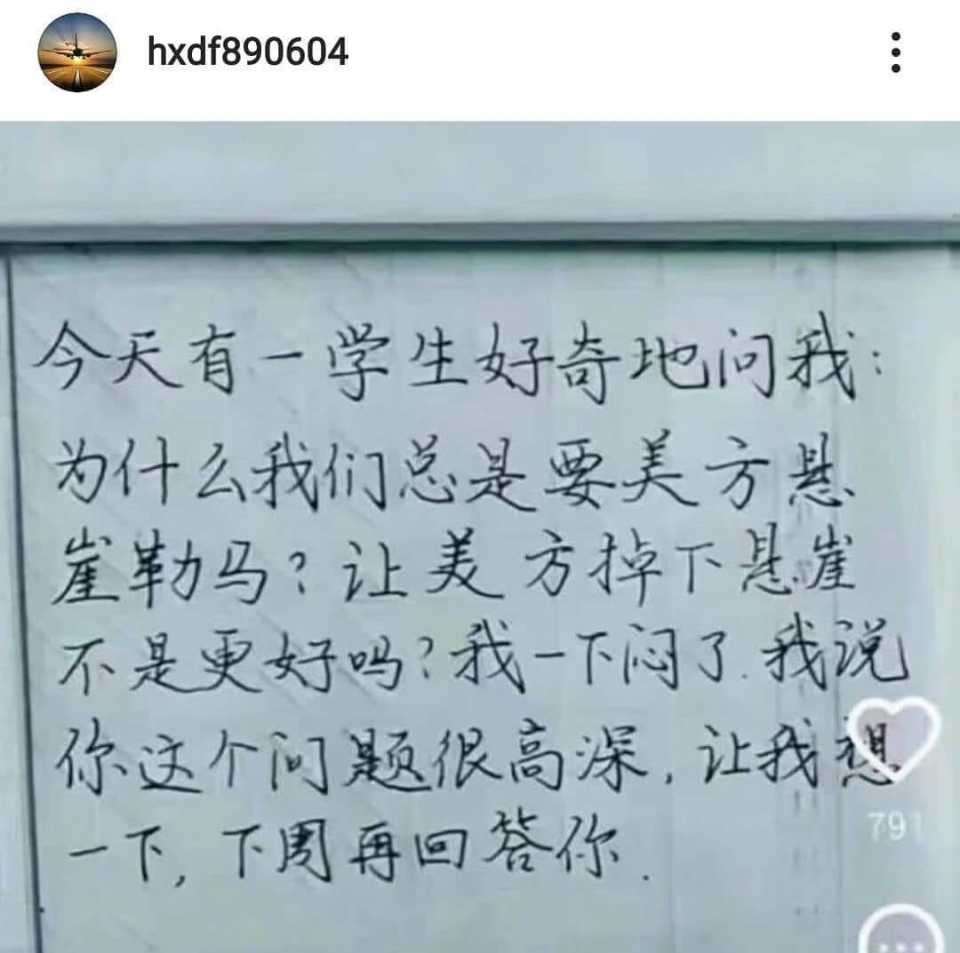 hxdf890604
今天有一学生好奇地问我:
为什么我们总是要美方悬
崖勒马?让美方掉下悬崖
不是更好吗?我一下闷了.我说
你这个问题很高深,让我想
一下,下周再回答你.
791